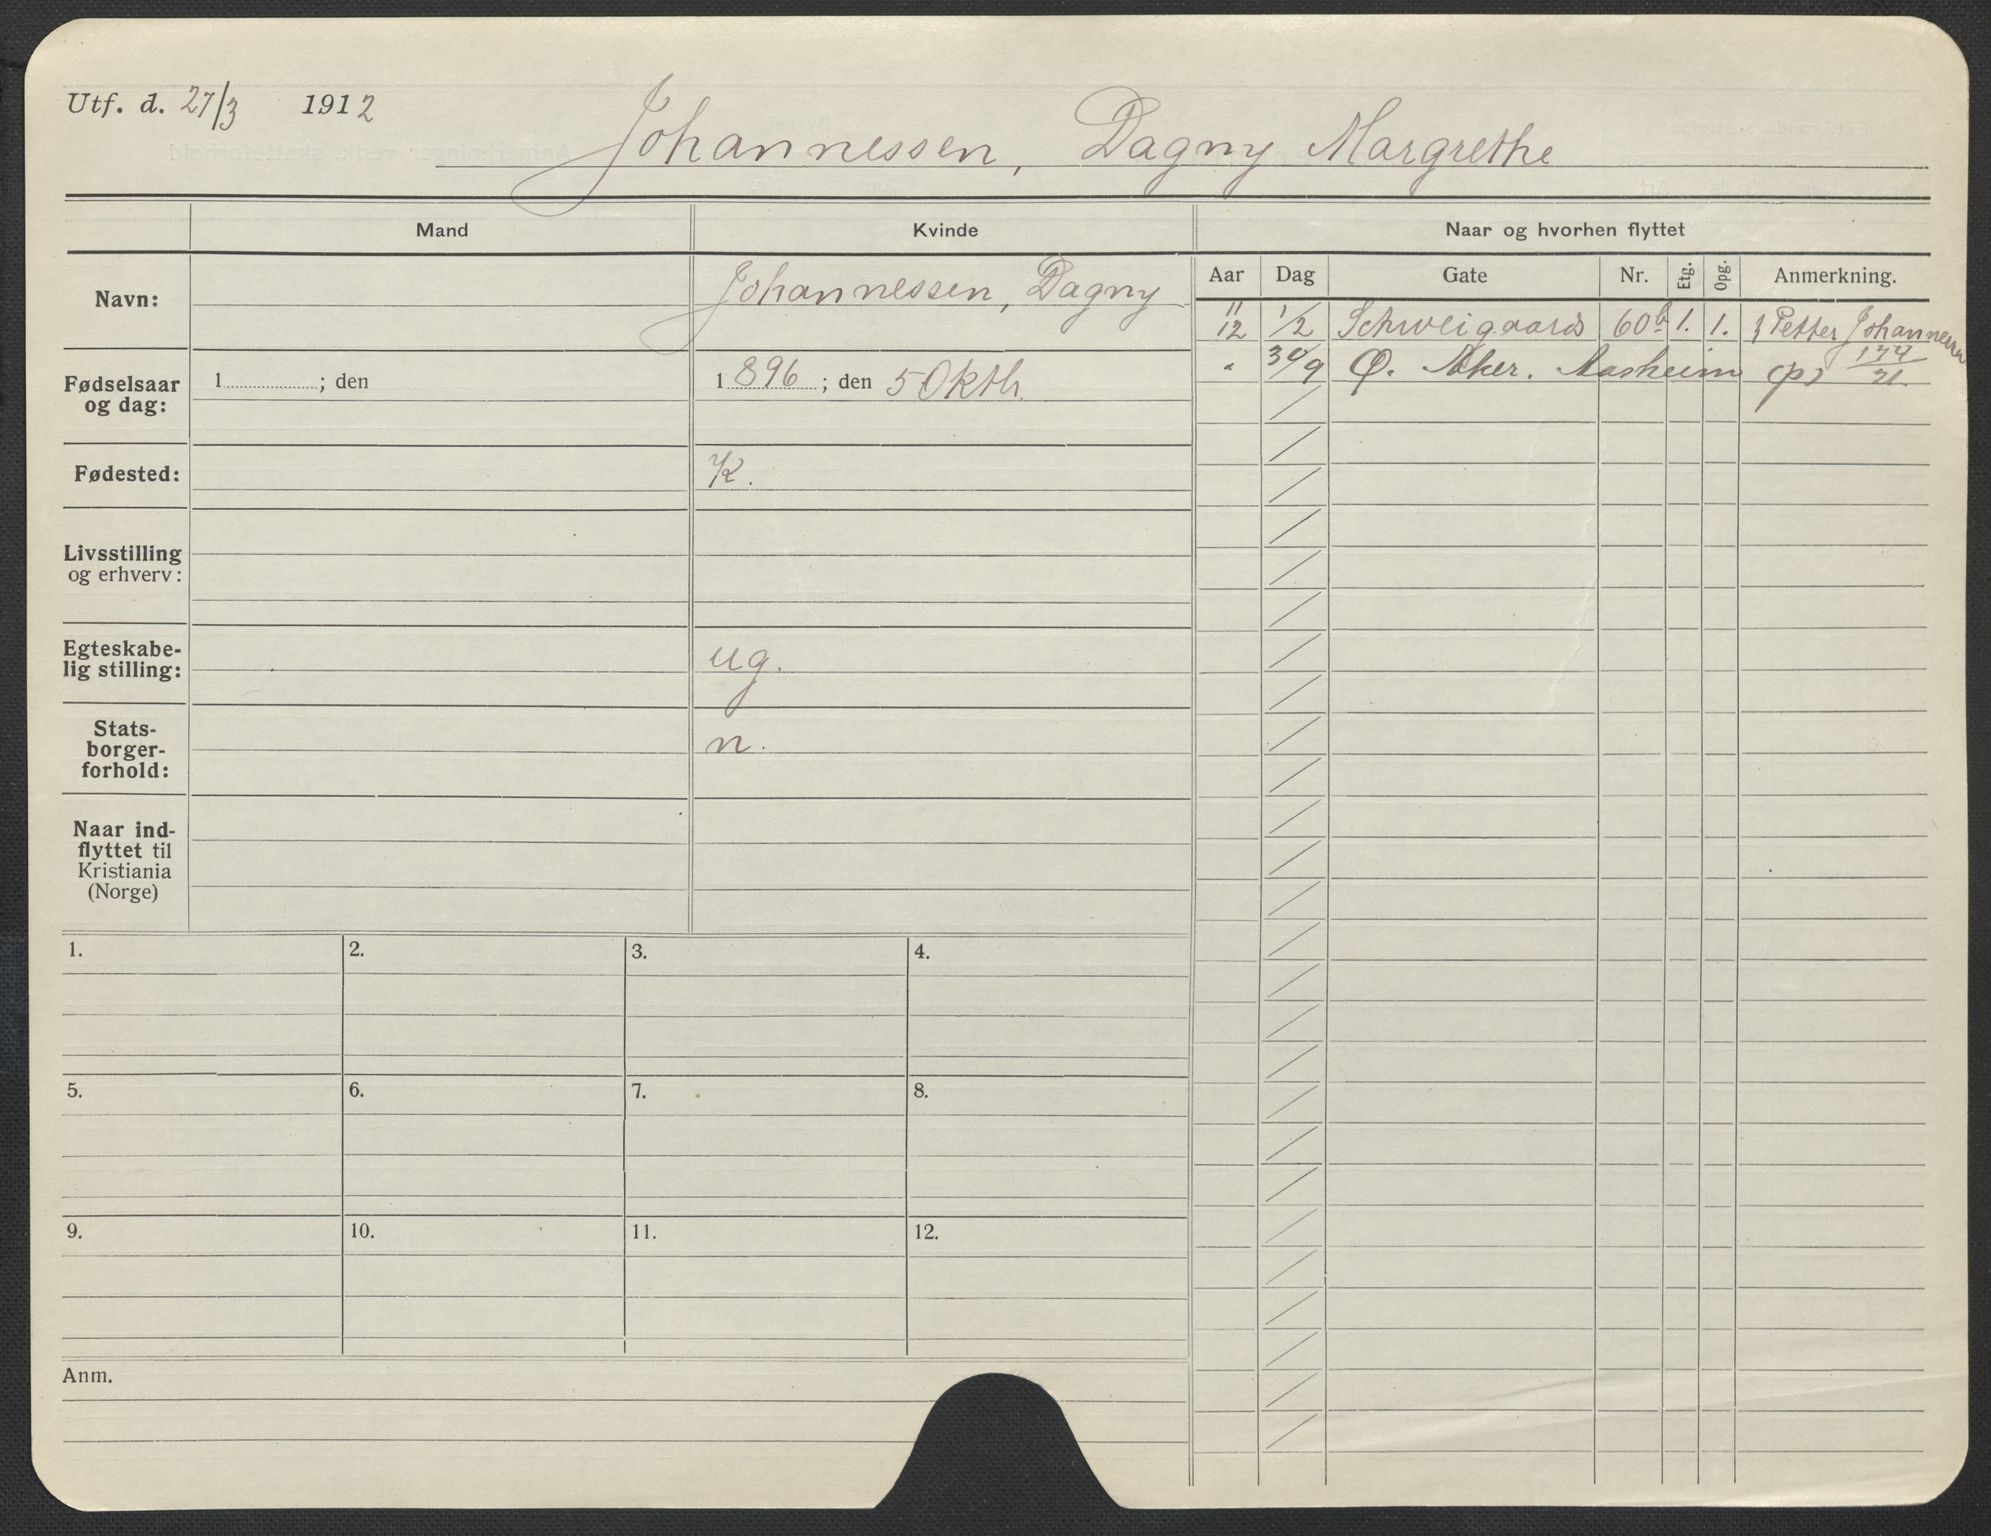 Utf. d. 27/3 1912
Johannessen, Dagny Margrethe
Mand Kvinde Naar og hvorhen flyttet
Navn: Johannessen, Dagny
Aar Dag Gate Nr. Etg. Opg. Anmerkning.
11
12 1/2 Schweigaards 60b 1. 1. Petter Johannessen
" 30/9 Ø. Aker. Aasheim
Fødselsaar
og dag:
1 ; den
1 896 ; den 5 Oktbr.
Fødested: K.
Livsstilling
og erhverv:
Egteskabe-
lig stilling: ug.
Stats-
borger-
forhold: n.
Naar ind-
flyttet til
Kristiania
(Norge)
1. 2. 3. 4.
5. 6. 7. 8.
9. 10. 11. 12.
Anm.